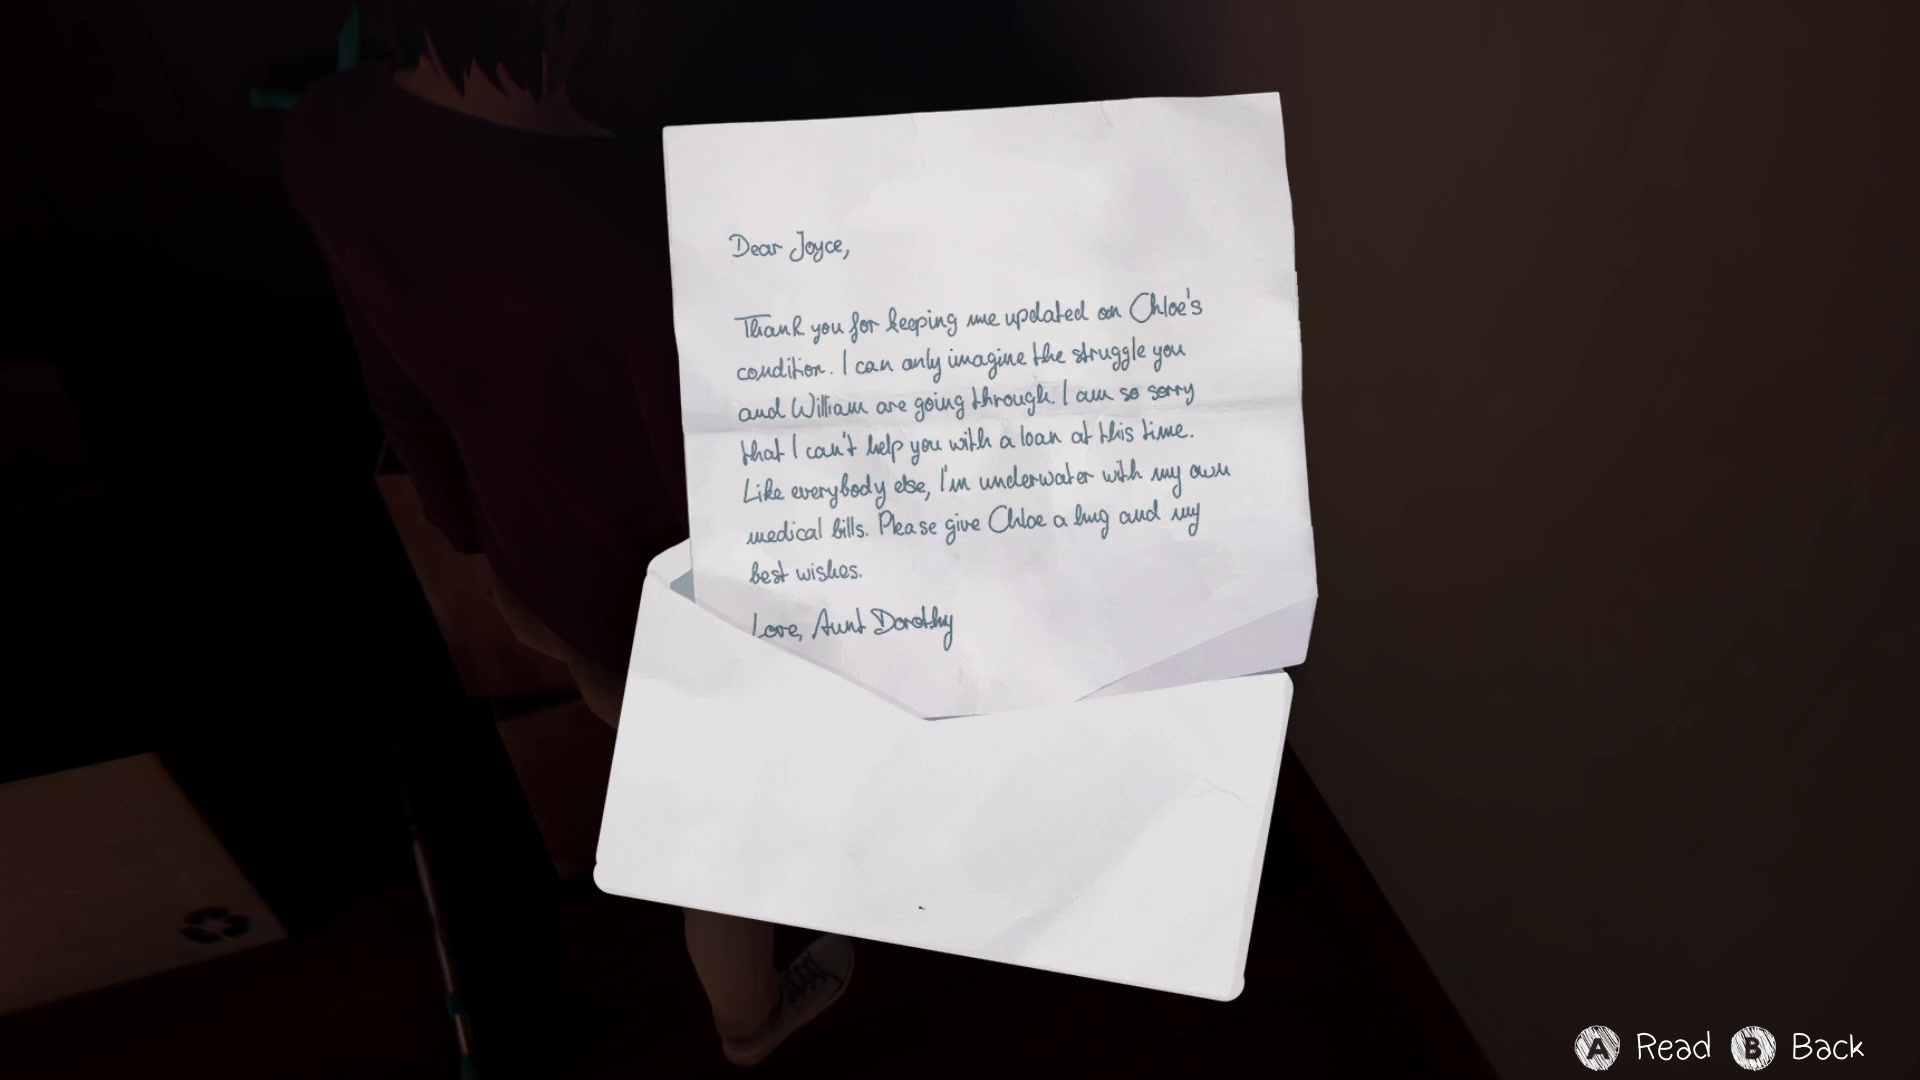 Dear Joyce,
Thank you for keeping me updated on Chloe's
condition. I can only imagine the struggle you
and William are going through. I am so sorry
that I can't help you with a loan at this time.
Like everybody else, I'm underwater with my own
medical bills. Please give Chloe a hug and my
best wishes.
Love, Aunt Dorothy
A Read B Back